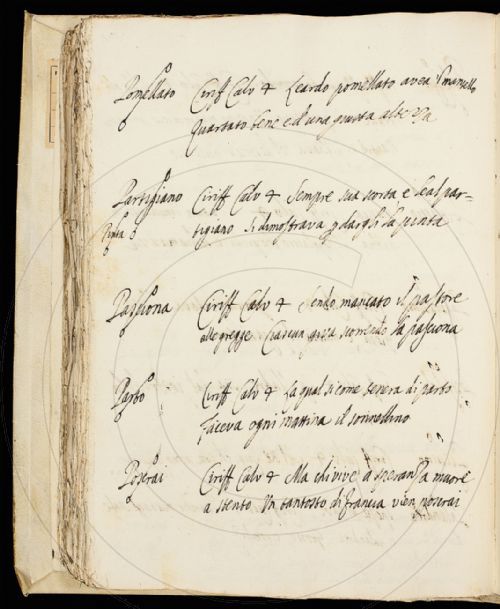 Pomellato Ciriff Calv 4 Leardo pomellato avea il mantello
Quartato bene e d'una giusta altezza
Partigiano Ciriff Calv 4 Sempre sua scorta, e leal par-
Punta tigiano si dimostrava p dargli la punta
Pasciona Ciriff Calv 4 Sendo mancato il pastore
alle gregge Ciascun giva scorrendo la pasciona
Parto Ciriff Calv 4 La qual sicome tenera di parto
Faceva ogni mattina il sonnellino
Poserai Ciriff Calv 4 Ma chi vive a speranza muore
a stento Un tantosto di francia vien poserai